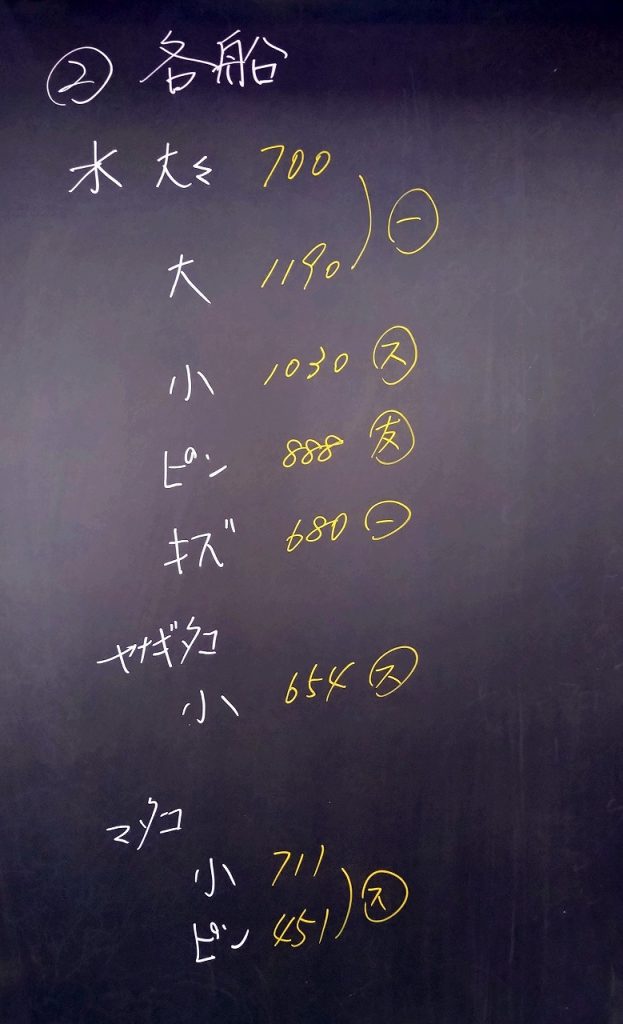 ② 各船
水 大々 700
大 1190 ㊀
小 1030 ㋜
ピン 888 友
キズ 680 ㊀
ヤナギタコ
小 654 ㋜
マダコ
小 711
ピン 451 ㋜